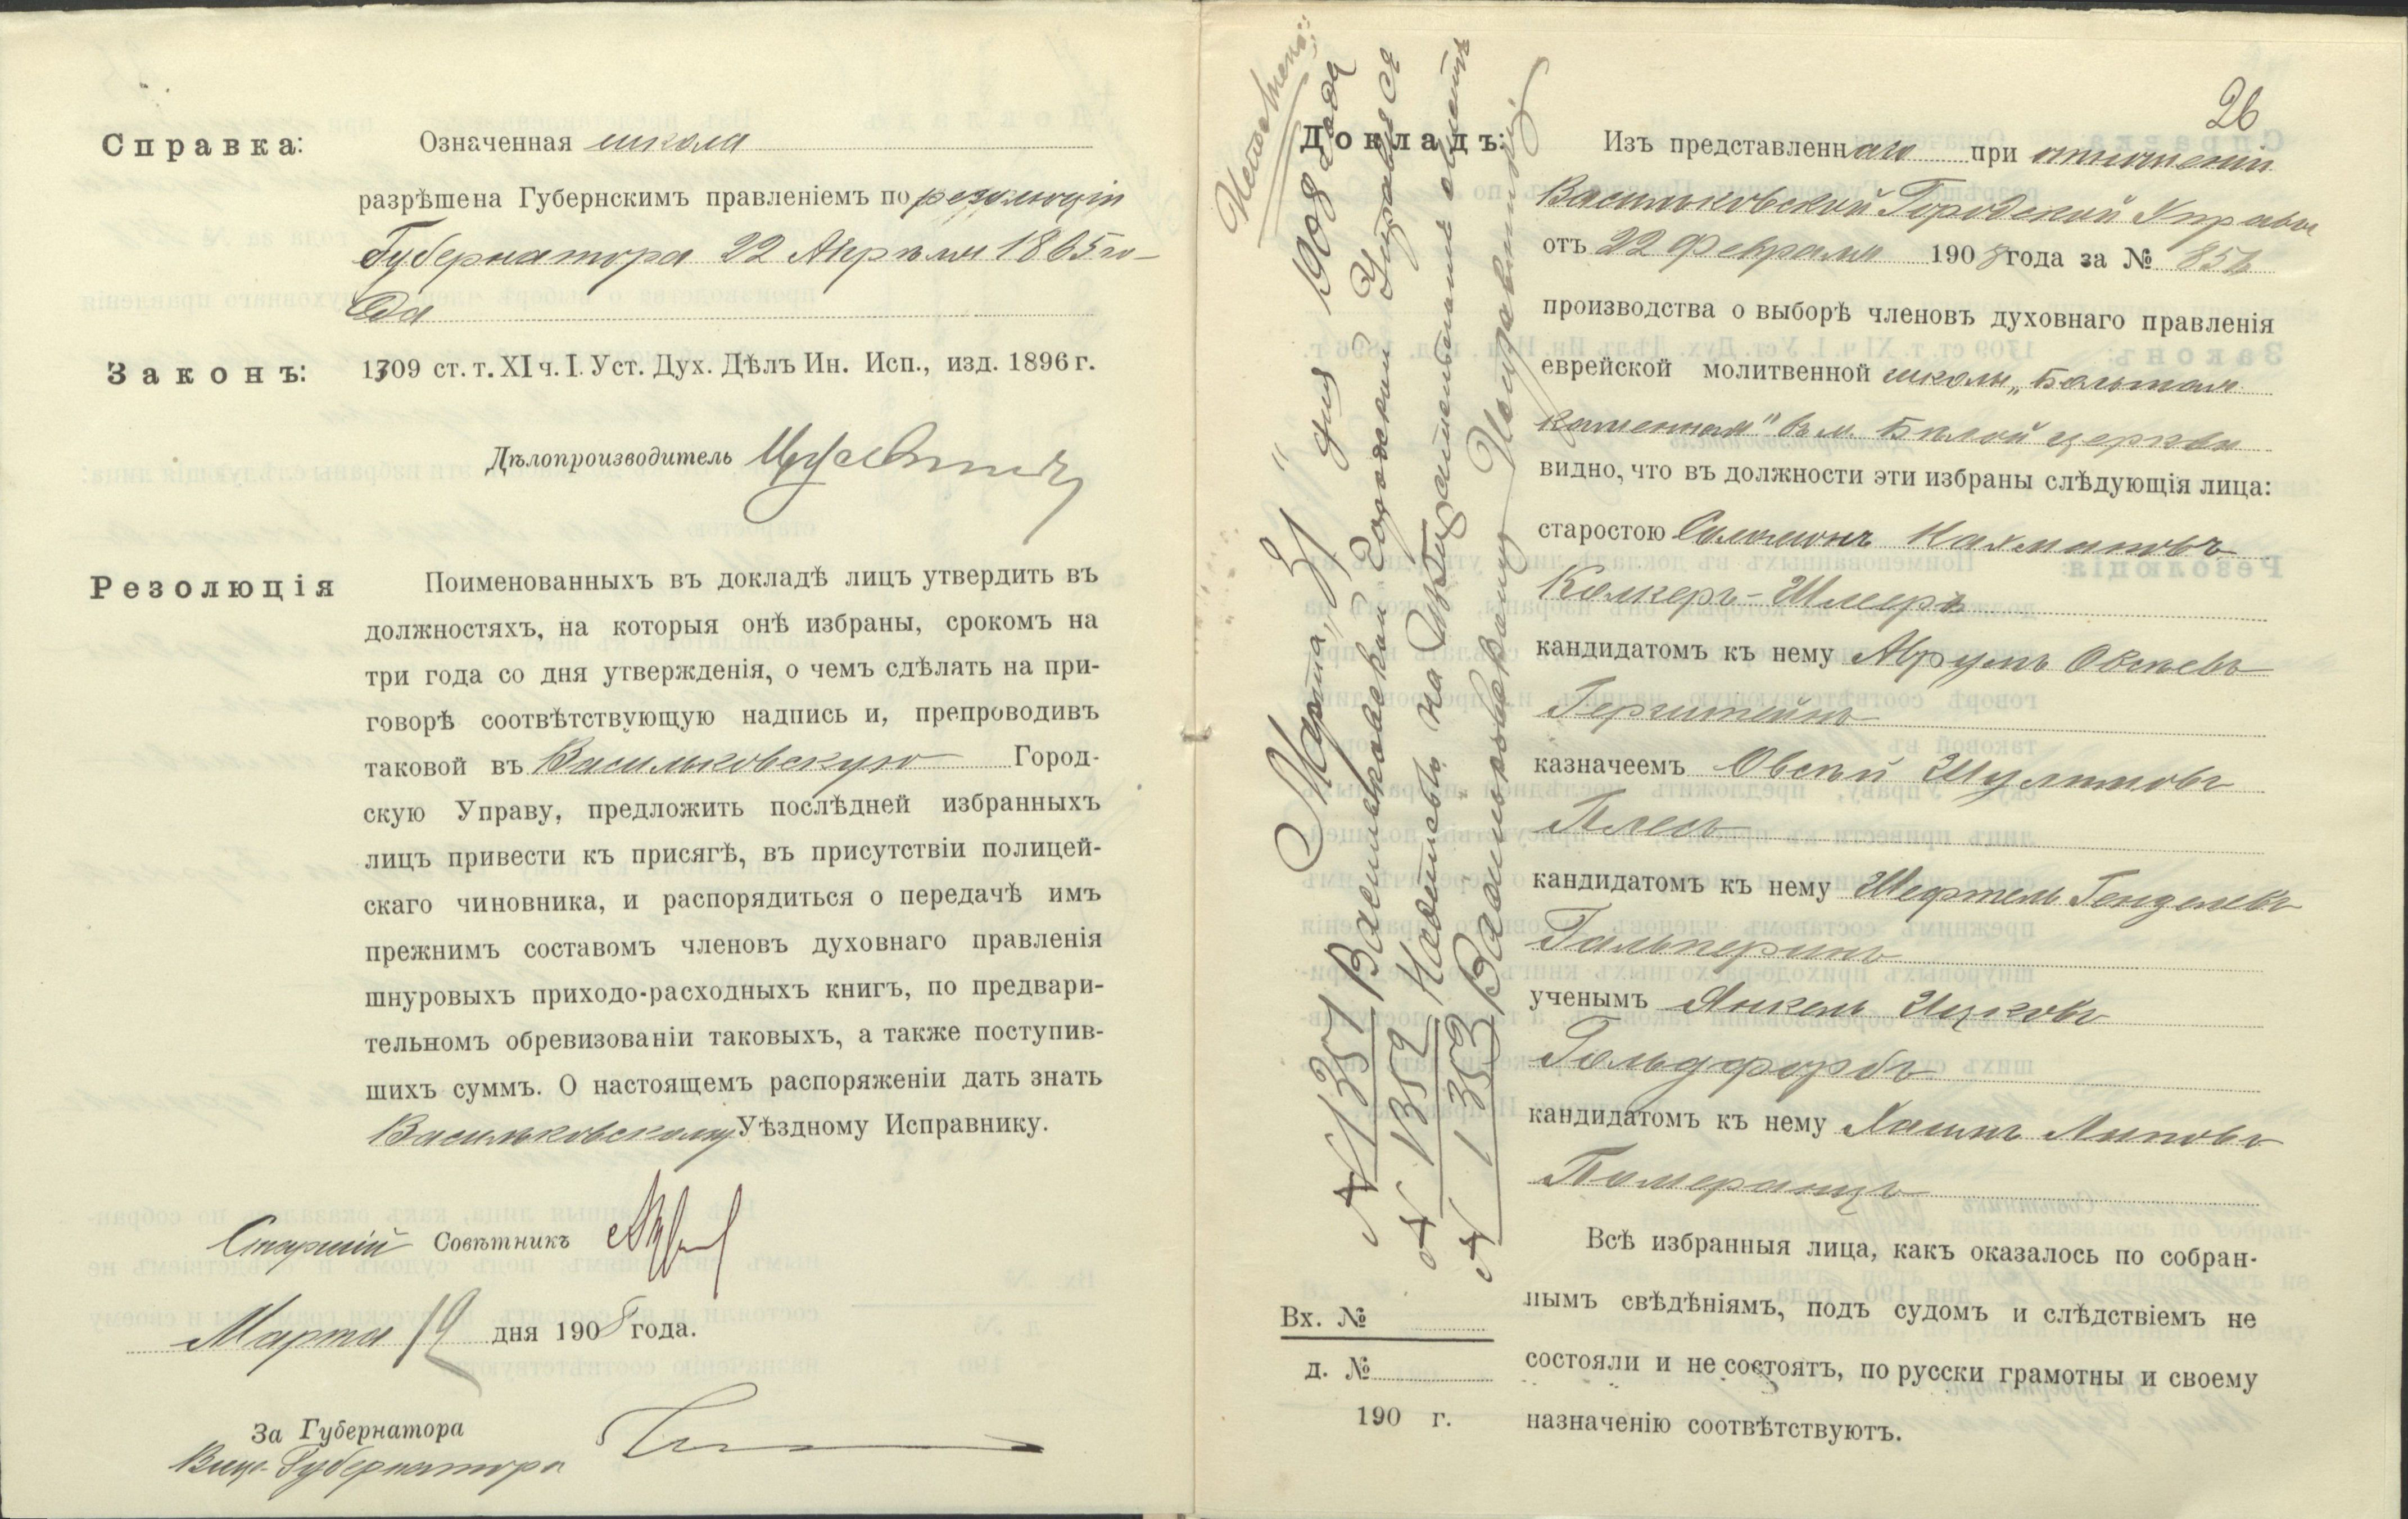 Справка: Означенная школа
разрѣшена Губернскимъ правленіемъ по резолюціи
Губернатора 22 Апрѣля 1865 го-
да
Законъ: 1709 ст. т. XI ч. I. Уст. Дух. Дѣлъ Ин. Исп., изд. 1896 г.
Дѣлопроизводитель
Резолюція Поименованныхъ въ докладѣ лицъ утвердить въ
должностяхъ, на которыя онѣ избраны, срокомъ на
три года со дня утвержденія, о чемъ сдѣлать на при-
говорѣ соотвѣтствующую надпись и, препроводивъ
таковой въ Васильковскую Город-
скую Управу, предложить послѣдней избранныхъ
лицъ привести къ присягѣ, въ присутствіи полицей-
скаго чиновника, и распорядиться о передачѣ имъ
прежнимъ составомъ членовъ духовнаго правленія
шнуровыхъ приходо-расходныхъ книгъ, по предвари-
тельномъ обревизованіи таковыхъ, а также поступив-
шихъ суммъ. О настоящемъ распоряженіи дать знать
Васильковскому Уѣздному Исправнику.
Старшій Совѣтникъ
Марта 19 дня 1908 года.
За Губернатора
Вице-Губернаторъ
26
Докладъ: Изъ представленнаго при отношеніи
Васильковской Городской Управы
отъ 22 Февраля 1908 года за №
производства о выборѣ членовъ духовнаго правленія
еврейской молитвенной школы „Большая
каменная" въ м. Бѣлой церкви
видно, что въ должности эти избраны слѣдующія лица:
старостою Соломонъ Нахмановъ
Колкеръ-Шмеръ
кандидатомъ къ нему Аврумъ Овсѣевъ
Герштейнъ
казначеемъ Овсѣй Шулимовъ
Плесъ
кандидатомъ къ нему Шефтель Генделевъ
Гальперинъ
ученымъ Янкель Ицковъ
Гольдфорбъ
кандидатомъ къ нему Хаимъ Липовъ
Померанцъ
Всѣ избранныя лица, какъ оказалось по собран-
нымъ свѣдѣніямъ, подъ судомъ и слѣдствіемъ не
состояли и не состоятъ, по русски грамотны и своему
назначенію соотвѣтствуютъ.
Вх. №
д. №
190 г.
Марта „31" дня 1908 года
№ 1351 Васильковской городской Управѣ
№ 1352 Надпись на
№ 1353 Васильковскому Исправнику